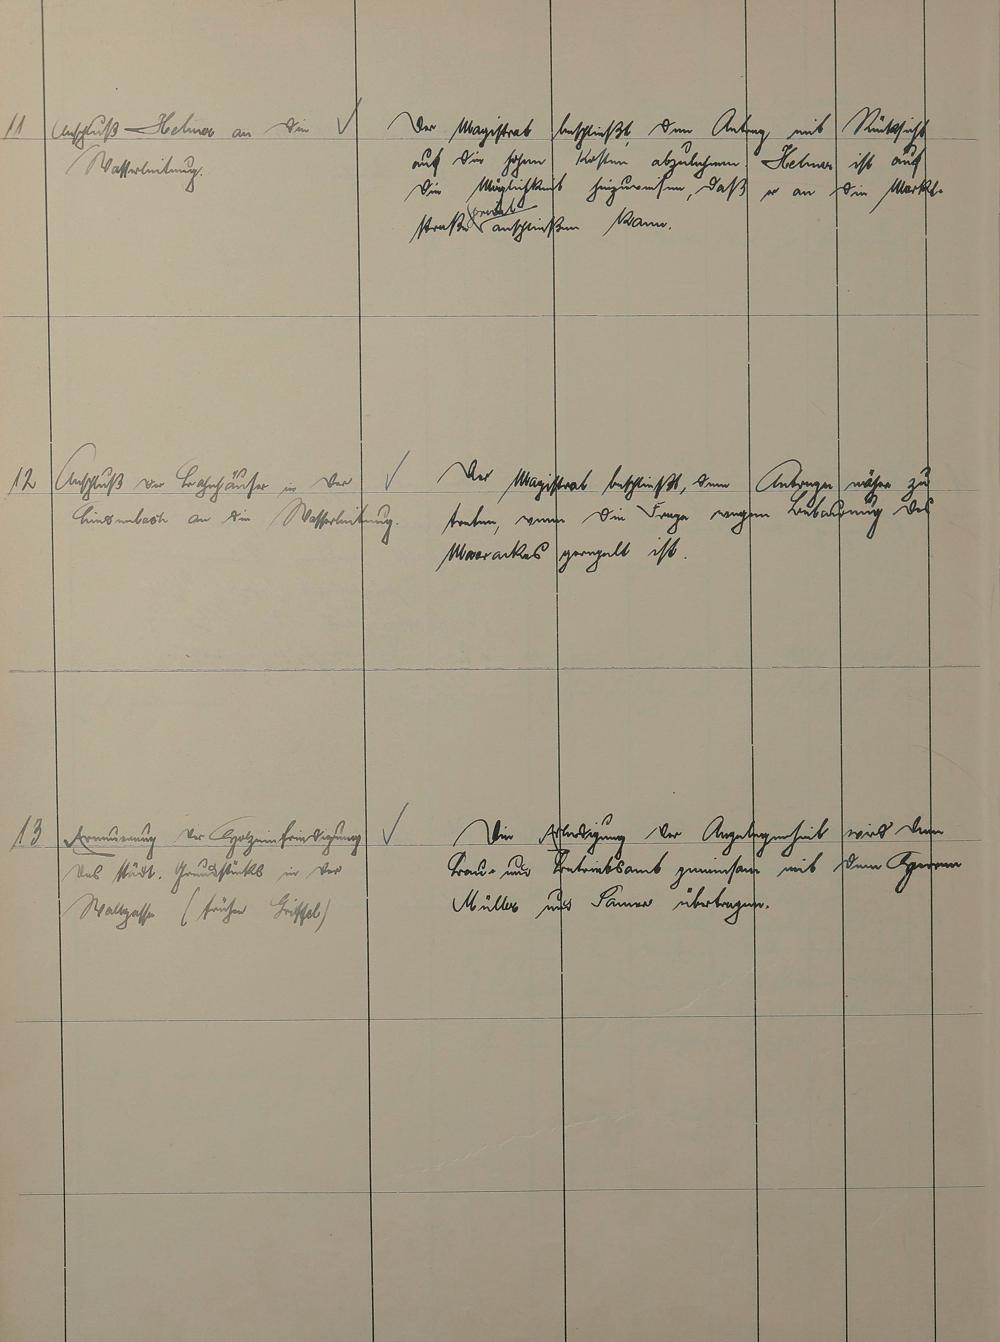 11 Anschluß Helmer an die ✓
Wasserleitung.
Der Magistrat beschließt, den Antrag, mit Rücksicht
auf die hohen Kosten abzulehnen. Helmer ist auf
die Möglichkeit hinzuweisen, daß er an die Markt-
straße privat anschließen kann.
12 Anschluß der Bahnhäuser in der ✓
an die Wasserleitung.
Der Magistrat beschließt, dem Antrage näher zu
treten, wenn die Frage wegen Bebauung des
geregelt ist.
13 Erneuerung der Holzeinfriedigung ✓
des städt. Grundstücks in der
Wallgasse (früher Griffel)
Die Erledigung der Angelegenheit wird dem
Bau- und Betriebsamt gemeinsam mit dem Herren
Müller und übertragen.